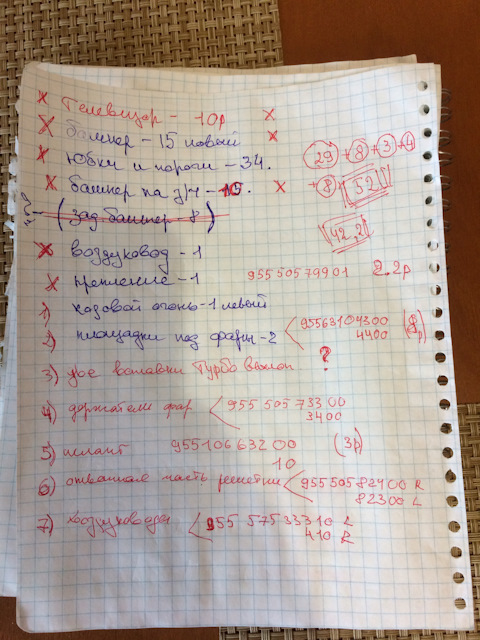 х Телевизар - 10р х
х бампер - 15 новый х
х Юбки и пороги - 34.
29 + 8 + 3 + 4
х бампер на з/ч - 15. х
+ 8 = 52
? - (зад. бампер - 8)
42,2
х воздуховод - 1
х крепление - 1 955 505 799 01 2.2р
1) ходовой огонь - 1 левый
2) площадки под фары - 2 < 95563104300 (8р)
4400
3) две вставки Турбо ?
4) держатели фар < 955 505 733 00
3400
5) 955 106 632 00 (3р)
10
6) часть решетки < 955505 82400 R
82300 L
7) Воздуховоды < 955 575 33310 L
410 R